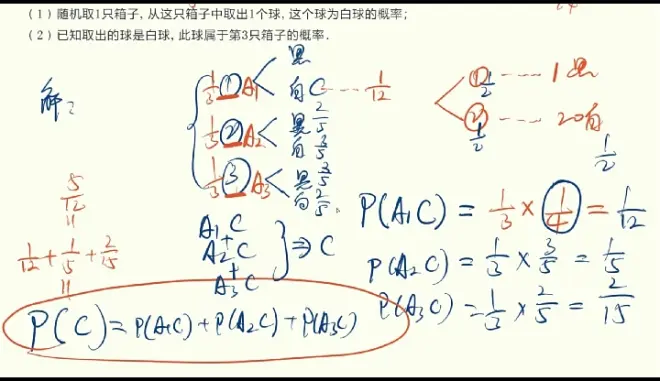 (1)随机取1只箱子,从这只箱子中取出1个球,这个球为白球的概率;
(2)已知取出的球是白球,此球属于第3只箱子的概率.
解:
1/3 ① A₁ 黑
白C ---- 1/12
1/3 ② A₂ 黑 2/5
白 3/5
1/3 ③ A₃ 黑 3/5
白 2/5
① 1/2 ---- 1黑
② 1/2 ---- 20白
1/2
A₁C
+
A₂C
+
A₃C
} ⇒ C
P(A₁C) = 1/3 × 1/4 = 1/12
P(A₂C) = 1/3 × 3/5 = 1/5
P(A₃C) = 1/3 × 2/5 = 2/15
5/12
=
1/12 + 1/5 + 2/15
=
P(C) = P(A₁C) + P(A₂C) + P(A₃C)